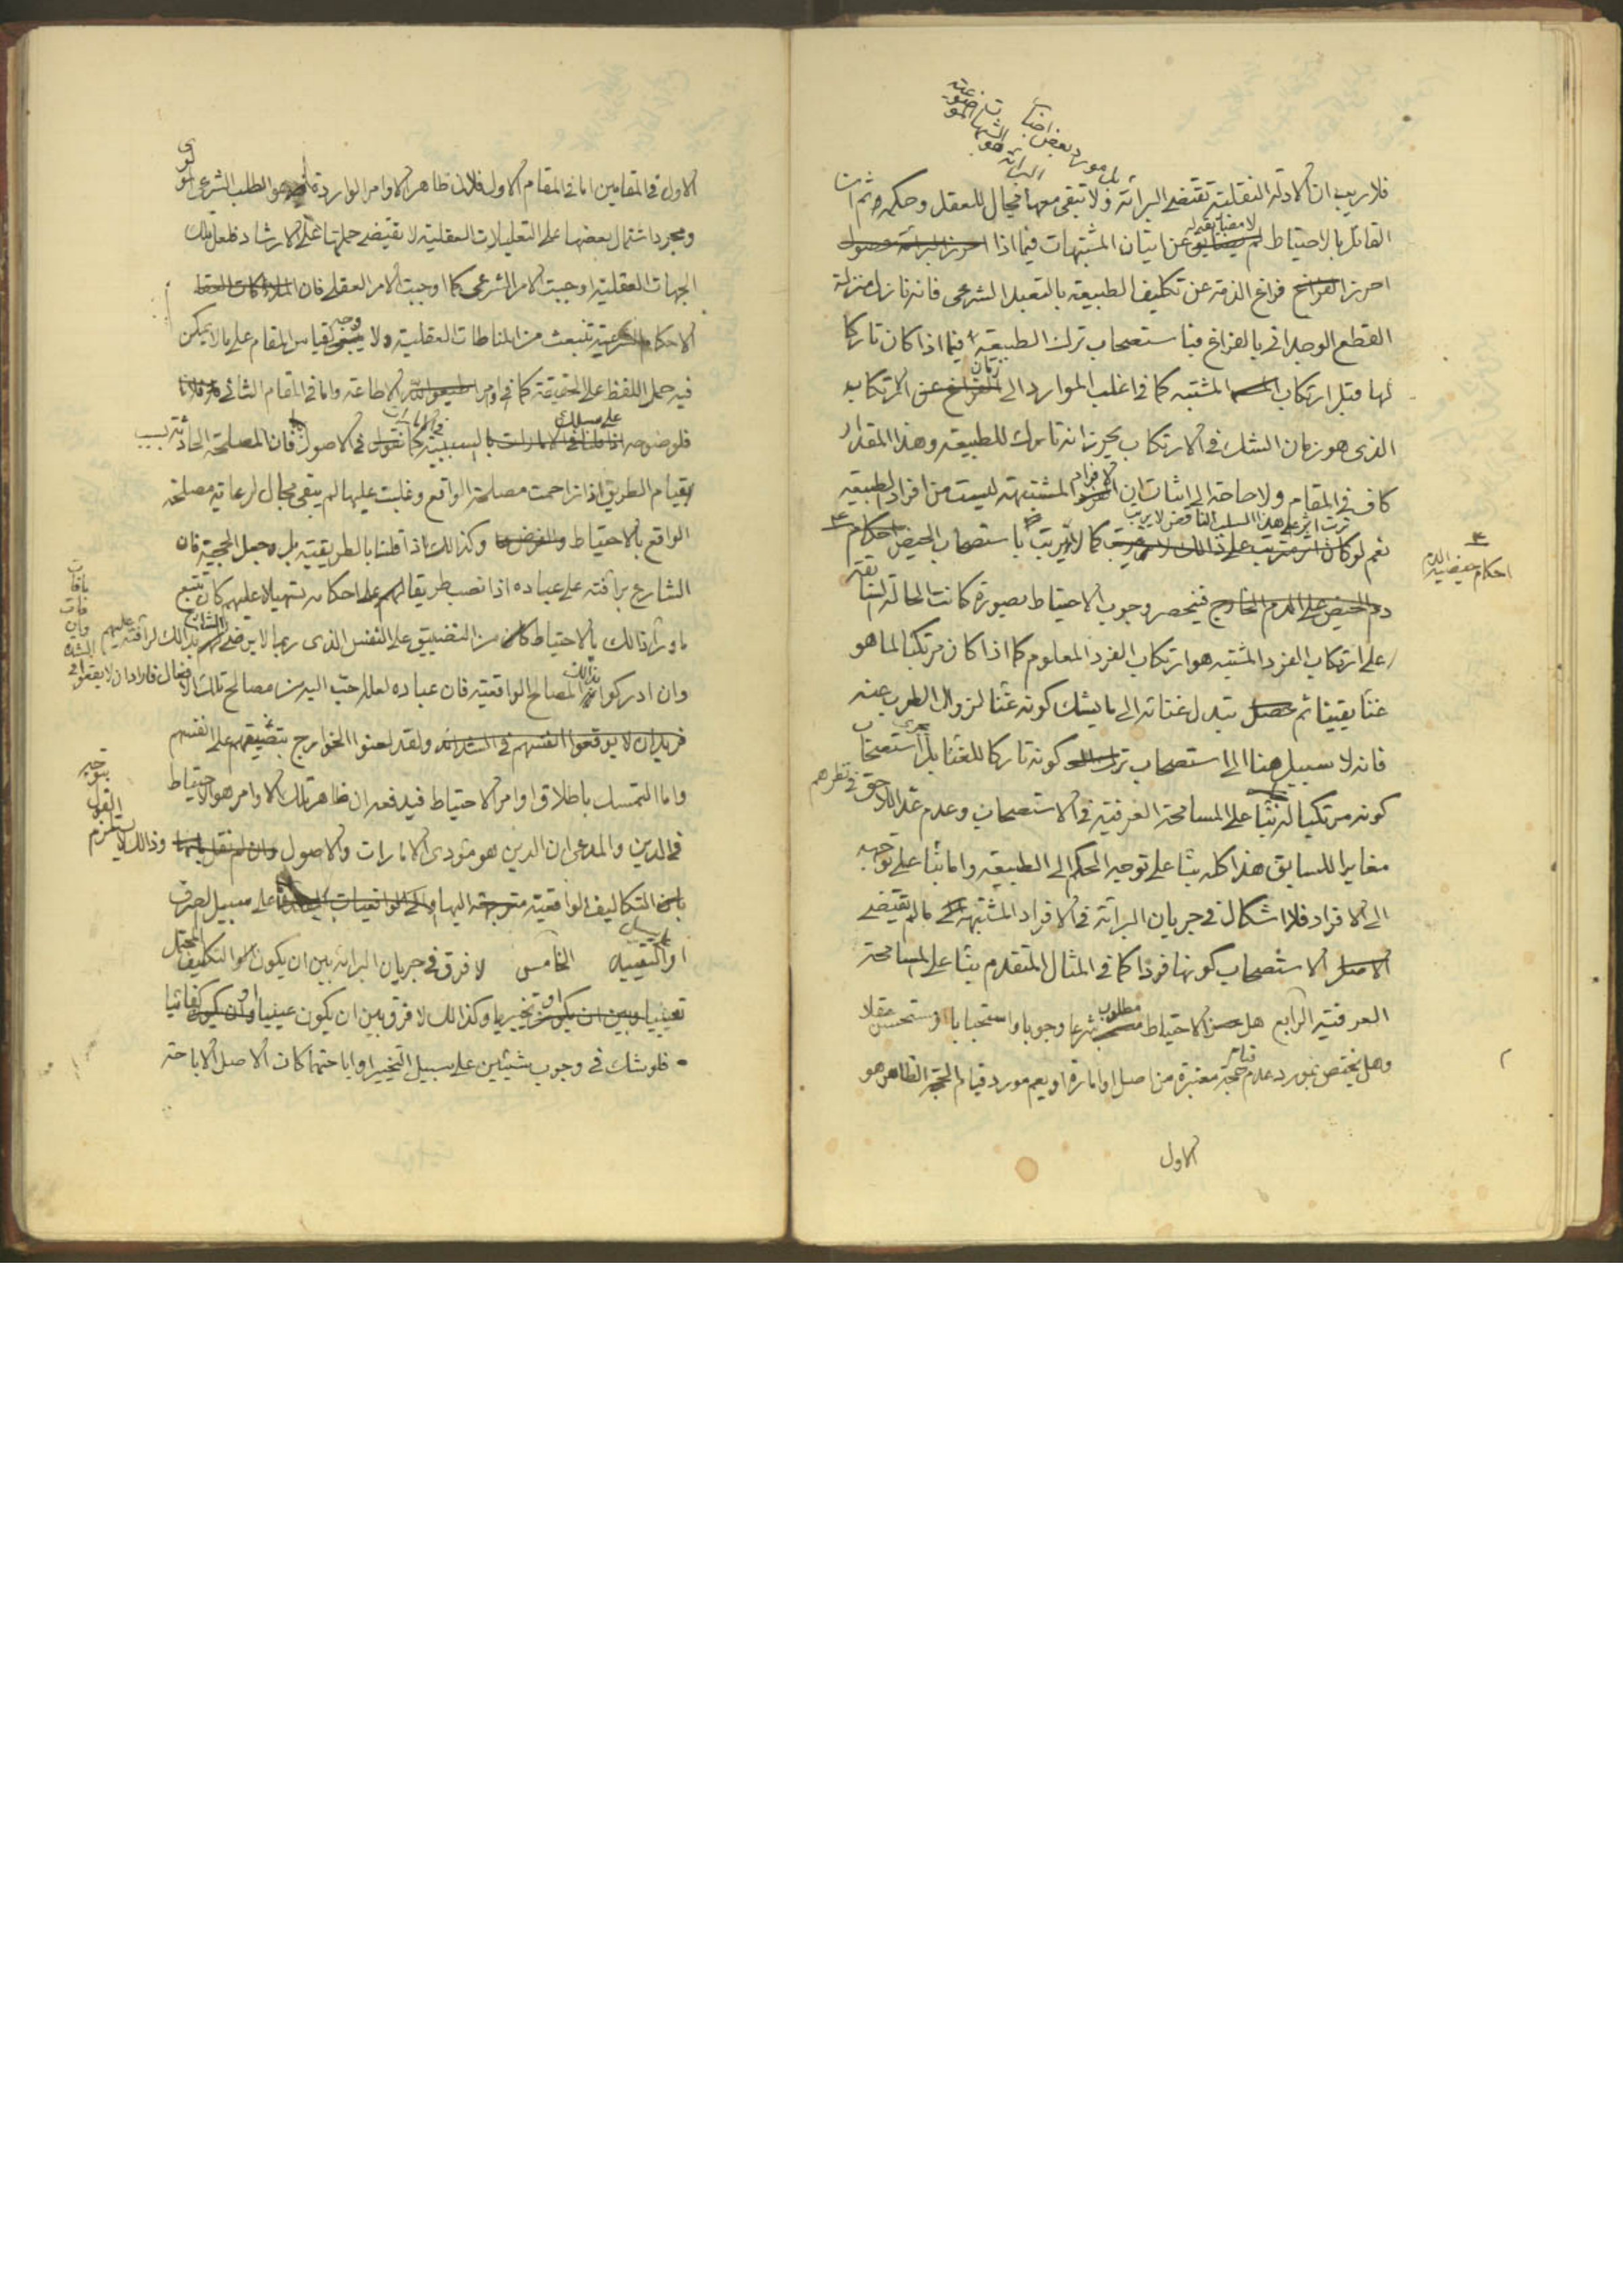 بل مورد بعض اخبار
البرائة هو
الشبهات
الموضوعية
فلا ريب ان الادلة النقلية تقتضى البرائة ولا تبقى معها مجال للعقل وحكمه ثم ان
القائل بالاحتياط لا مضايقة له عن اتيان المشتبهات فيما اذا احرز البرائة
احرز الفراغ فراغ الذمة عن تكليف الطبيعة بالتعبد الشرعى فانه نازل منزلة
القطع الوجدانى بالفراغ فباستصحاب ترك الطبيعة فيما اذا كان تاركا
لها قبل ارتكاب المشتبه كما فى اغلب الموارد الى زمان الفراغ عن الارتكاب
الذى هو زمان الشك فى الارتكاب يحرز انه تارك للطبيعة وهذا المقدار
كاف فى المقام ولا حاجة الى اثبات ان الافراد المشتبهة ليست من افراد الطبيعة
نعم لو كان ترتب اثر على هذا السلب الناقص لا يرتب كما لا يرتب باستصحاب الحيض احكام
احكام حيضية الدم
دم الحيض على الدم الخارج فينحصر وجوب الاحتياط بصورة كانت الحالة السابقة
على ارتكاب الفرد المشتبه هو ارتكاب الفرد المعلوم كما اذا كان مرتكبا لما هو
غناء يقينا ثم حصل تبدل غنائه الى ما يشك كونه غناء لزوال الطرب عنه
فانه لا سبيل هنا الى استصحاب ترك كونه تاركا للغناء بل يجرى استصحاب
كونه مرتكبا له بناء على المسامحة العرفية فى الاستصحاب وعدم عد اللاحق فى نظرهم
مغايرا للسابق هذا كله بناء على توجيه الحكم الى الطبيعة واما بناء على توجهه
الى الافراد فلا اشكال فى جريان البرائة فى الافراد المشتبهة ما لم يقتضى
الاصل الاستصحاب كونها فردا كما فى المثال المتقدم بناء على المسامحة
العرفية الرابع هل حسن الاحتياط مطلوب شرعا وجوبا واستحبابا او مستحسن عقلا
وهل يختص بمورد عدم قيام حجة معتبرة من اصل او امارة او يعم مورد قيام الحجة الظاهر هو
الاول
الاول فى المقامين اما فى المقام الاول فلان ظاهر الاوامر الواردة هو الطلب الشرعى المولوى
ومجرد اشتمال بعضها على التعليلات العقلية لا يقتضى حملها على الارشاد فلعل تلك
الجهات العقلية اوجبت الامر الشرعى كما اوجبت الامر العقلى فان
الاحكام الشرعية تنبعث من المناطات العقلية ولا وجه لقياس المقام على ما لا يمكن
فيه حمل اللفظ على الحقيقة كما فى اوامر الاطاعة واما فى المقام الثانى
فلوضوحه على مسلك السببية فى الامارات كما نقول فى الاصول فان المصلحة الحادثة بسبب
قيام الطريق اذا زاحمت مصلحة الواقع وغلبت عليها لم يبقى مجال لرعاية مصلحة
الواقع بالاحتياط وكذلك اذا قلنا بالطريقية بل وجعل الحجية فان
الشارع برأفته على عباده اذا نصب طريقا لهم على احكامه تسهيلا عليهم كان تتبع
ما وراء ذلك بالاحتياط من التضييق على النفس الذى ربما لا يرضى الشارع بذلك لرأفته عليهم
وان ادركوا بذلك المصالح الواقعية فان عباده لعله احب اليه من مصالح تلك الافعال فاراد ان لا يقعوا فى
الشدة
وان
فات
ما فات
فيريد ان لا يوقعوا انفسهم فى الشدائد ولقد لعنوا الخوارج بتضييقهم على انفسهم
واما التمسك باطلاق اوامر الاحتياط فيدفعه ان ظاهر تلك الاوامر هو الاحتياط
فى الدين والمدعى ان الدين هو مؤدى الامارات والاصول وان لم نقل وذلك لا يستلزم
القول
بتوجه
بان التكاليف الواقعية متوجهة اليها على سبيل الصرف
او التقييد الخامس لا فرق فى جريان البرائة بين ان يكون التكليف المحتمل
تعيينيا او تخييريا وكذلك لا فرق بين ان يكون عينيا او كفائيا
فلو شك فى وجوب شيئين على سبيل التخيير او اباحتهما كان الاصل الاباحة